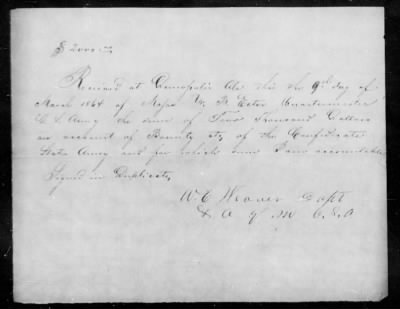 $ 2000.00
Received at Demopolis Ala this the 9th day of
March 1864 of Major W. H. Ector Quartermaster
C. S. Army the sum of Two Thousand Dollars
on account of Bounty etc of the Confederate
States Army and for which sum I am accountable
Signed in Duplicate,
W. C. Hoover Capt
& A Q M C.S.A